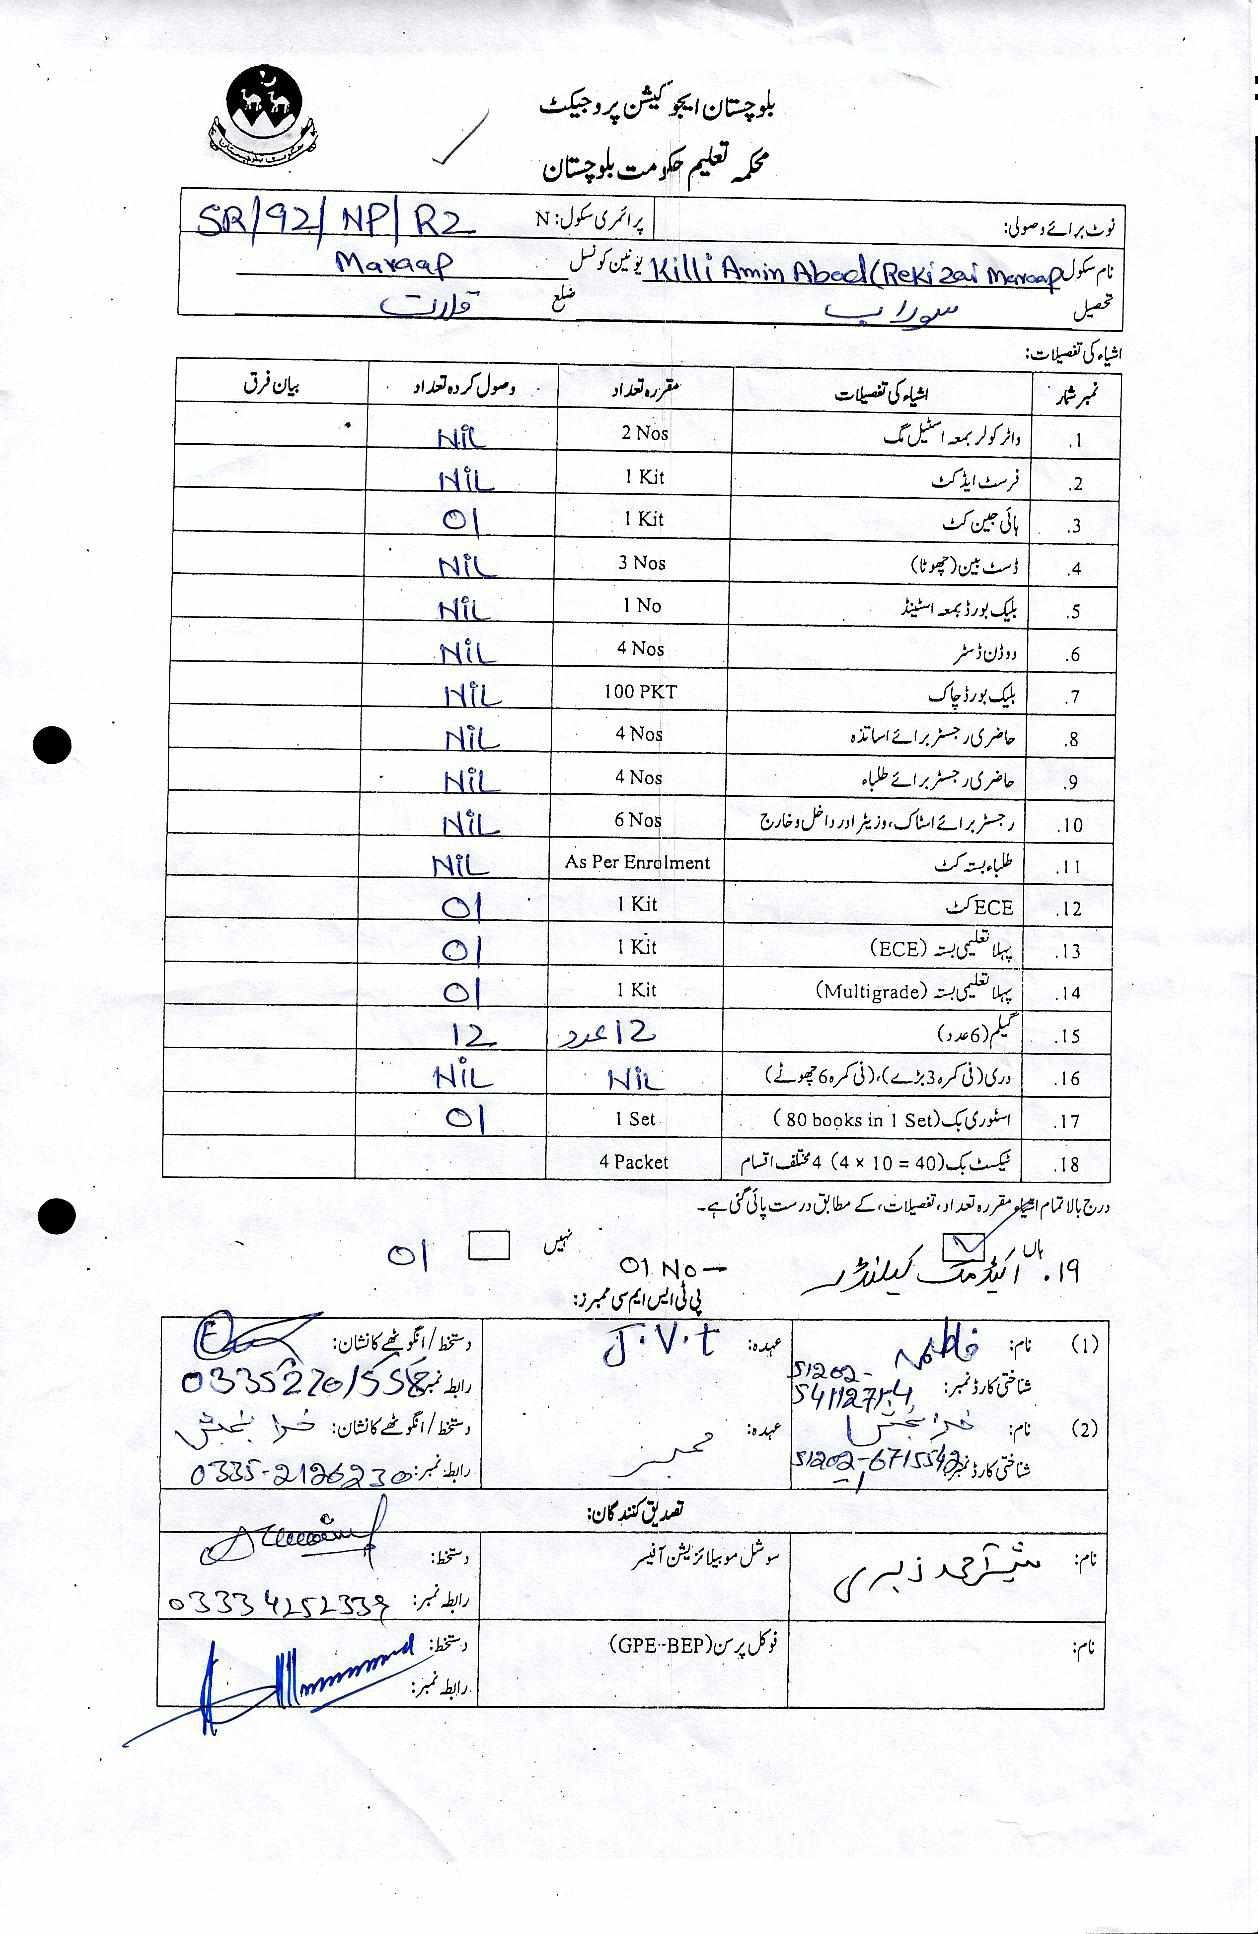 بلوچستان ایجوکیشن پروجیکٹ
محکمہ تعلیم حکومت بلوچستان
نوٹ برائے وصولی: پرائمری سکول: N SR/92/NP/R2
نام سکول Killi Amin Abad (Rekizai Maraap یونین کونسل Maraap
تحصیل سوراب ضلع قلات
اشیاء کی تفصیلات:
نمبر شمار اشیاء کی تفصیلات مقررہ تعداد وصول کردہ تعداد بیان فرق
1. واٹر کولر بمعہ اسٹیل مگ 2 Nos NiL
2. فرسٹ ایڈ کٹ 1 Kit NiL
3. ہائی جین کٹ 1 Kit 01
4. ڈسٹ بین (چھوٹا) 3 Nos NiL
5. بلیک بورڈ بمعہ اسٹینڈ 1 No NiL
6. ووڈن ڈسٹر 4 Nos NiL
7. بلیک بورڈ چاک 100 PKT NiL
8. حاضری رجسٹر برائے اساتذہ 4 Nos NiL
9. حاضری رجسٹر برائے طلباء 4 Nos NiL
10. رجسٹر برائے اسٹاک، وزیٹر اور داخل و خارج 6 Nos NiL
11. طلباء بستہ کٹ As Per Enrolment NiL
12. ECE کٹ 1 Kit 01
13. پہلا تعلیمی بستہ (ECE) 1 Kit 01
14. پہلا تعلیمی بستہ (Multigrade) 1 Kit 01
15. گیلم (6 عدد) 12 عدد 12
16. دری (فی کمرہ 3 بڑے)، (فی کمرہ 6 چھوٹے) NiL NiL
17. اسٹوری بک (80 books in 1 Set) 1 Set 01
18. ٹیکسٹ بک (4 × 10 = 40) 4 مختلف اقسام 4 Packet
درج بالا تمام اشیاء مقررہ تعداد، تفصیلات، کے مطابق درست پائی گئی ہے۔
ہاں نہیں
۱۹. اکیڈمک کیلنڈر 01 No — 01
پی ٹی ایس ایم سی ممبرز:
(1) نام: فاطمہ عہدہ: J.V.t دستخط/انگوٹھے کا نشان:
شناختی کارڈ نمبر: 51202- رابطہ نمبر:
(2) نام: خدا بخش عہدہ: ممبر دستخط/انگوٹھے کا نشان: خدا بخش
شناختی کارڈ نمبر: 51202-6715542 رابطہ نمبر: 0335-2126230
تصدیق کنندگان:
نام: احمد زہری سوشل موبیلائزیشن آفیسر دستخط:
رابطہ نمبر: 03334252339
نام: فوکل پرسن (GPE-BEP) دستخط:
رابطہ نمبر: